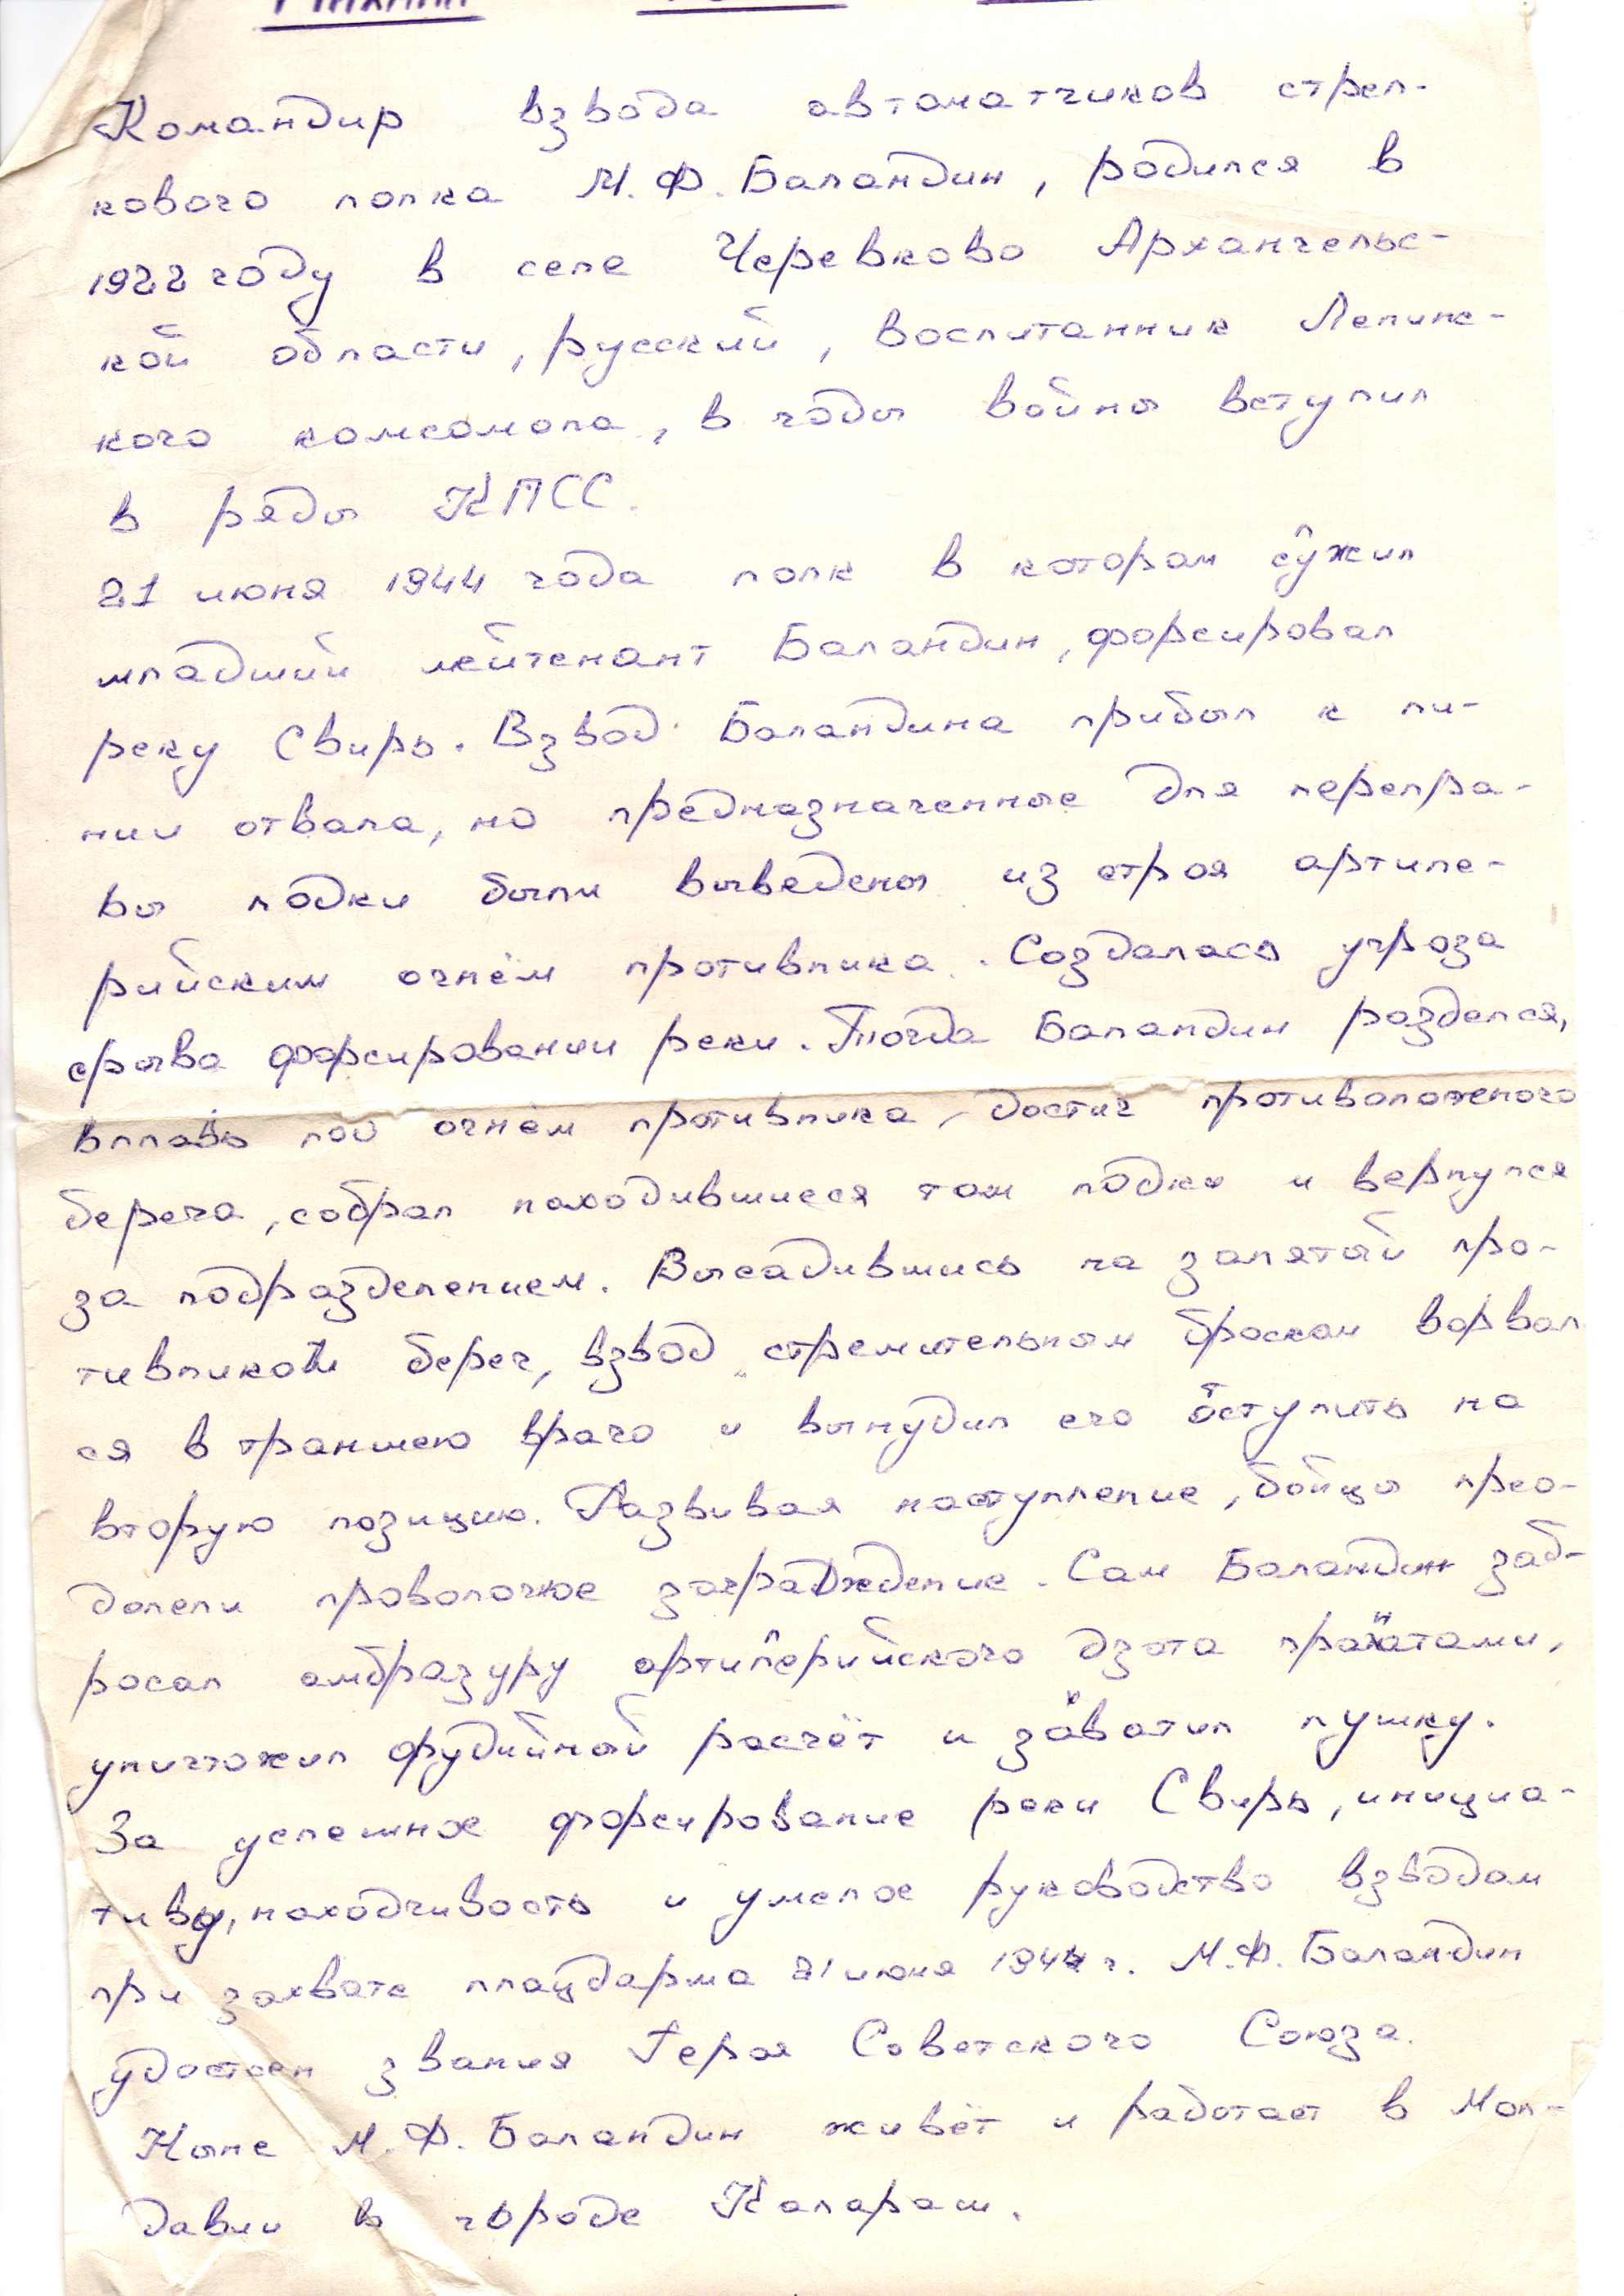 Командир взвода автоматчиков стрел-
кового полка М.Ф.Баландин, родился в
1922 году в селе Черевково Архангельс-
кой области, русский, воспитанник Ленинс-
кого комсомола, в годы войны вступил
в ряды КПСС.
21 июня 1944 года полк в котором служил
младший лейтенант Баландин, форсировал
реку Свирь. Взвод Баландина прибыл к ли-
нии отвала, но предназначенные для перепра-
вы лодки были выведены из строя артиле-
рийским огнём противника. Создалась угроза
срыва форсировании реки. Тогда Баландин разделся,
вплавь под огнём противника, достиг противоположного
берега, собрал находившиеся там лодки и вернулся
за подразделением. Высадившись на занятый про-
тивником берег, взвод стремительным броском ворвал
ся в траншею врага и вынудил его отступить на
вторую позицию. Развивая наступление, бойцы прео-
долели проволочное заграждение. Сам Баландин заб-
росал амбразуру артилерийского дзота гранатами,
уничтожил орудийный расчёт и захватил пушку.
За успешное форсирование реки Свирь, инициа-
тиву, находчивость и умелое руководство взводом
при захвате плацдарма 21 июня 1944 г. М.Ф.Баландин
удостоен звания Героя Советского Союза.
Ныне М.Ф.Баландин живёт и работает в Мол-
давии в городе Калараш.